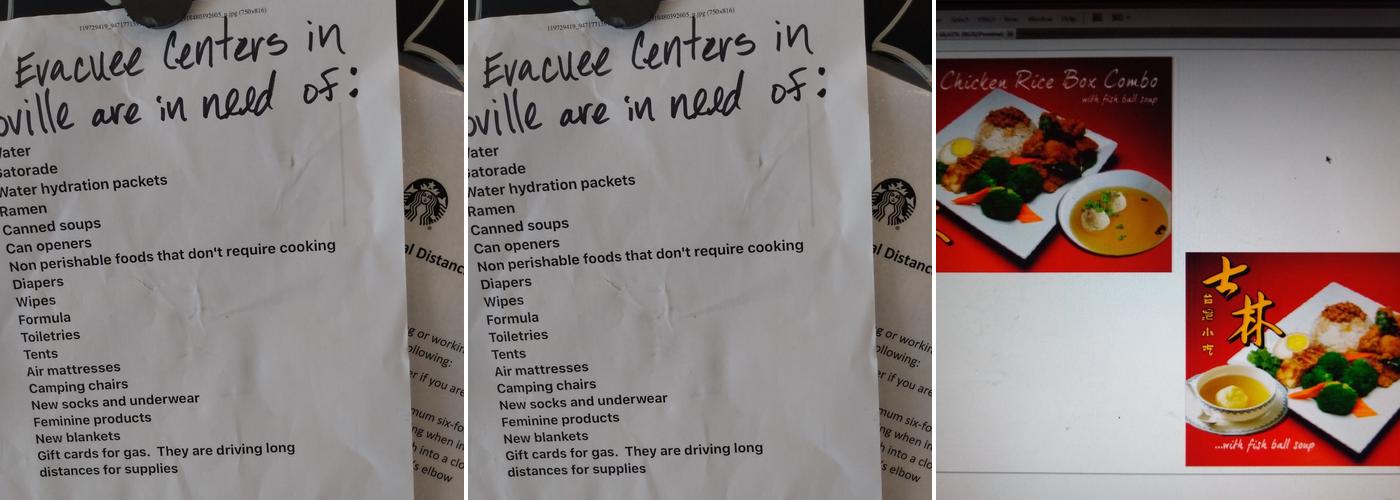 Evacuee Centers in
oville are in need of:
Water
Gatorade
Water hydration packets
Ramen
Canned soups
Can openers
Non perishable foods that don't require cooking
Diapers
Wipes
Formula
Toiletries
Tents
Air mattresses
Camping chairs
New socks and underwear
Feminine products
New blankets
Gift cards for gas. They are driving long
distances for supplies
al Distanc
g or workin
ollowing:
er if you are
mum six-fo
ng when in
h into a clo
s elbow
Evacuee Centers in
oville are in need of:
Water
Gatorade
Water hydration packets
Ramen
Canned soups
Can openers
Non perishable foods that don't require cooking
Diapers
Wipes
Formula
Toiletries
Tents
Air mattresses
Camping chairs
New socks and underwear
Feminine products
New blankets
Gift cards for gas. They are driving long
distances for supplies
al Distanc
g or workin
ollowing:
er if you are
mum six-fo
ng when in
h into a clo
s elbow
Select Effect View Window Help
Chicken Rice Box Combo
with fish ball soup
士林
台灣小吃
...with fish ball soup